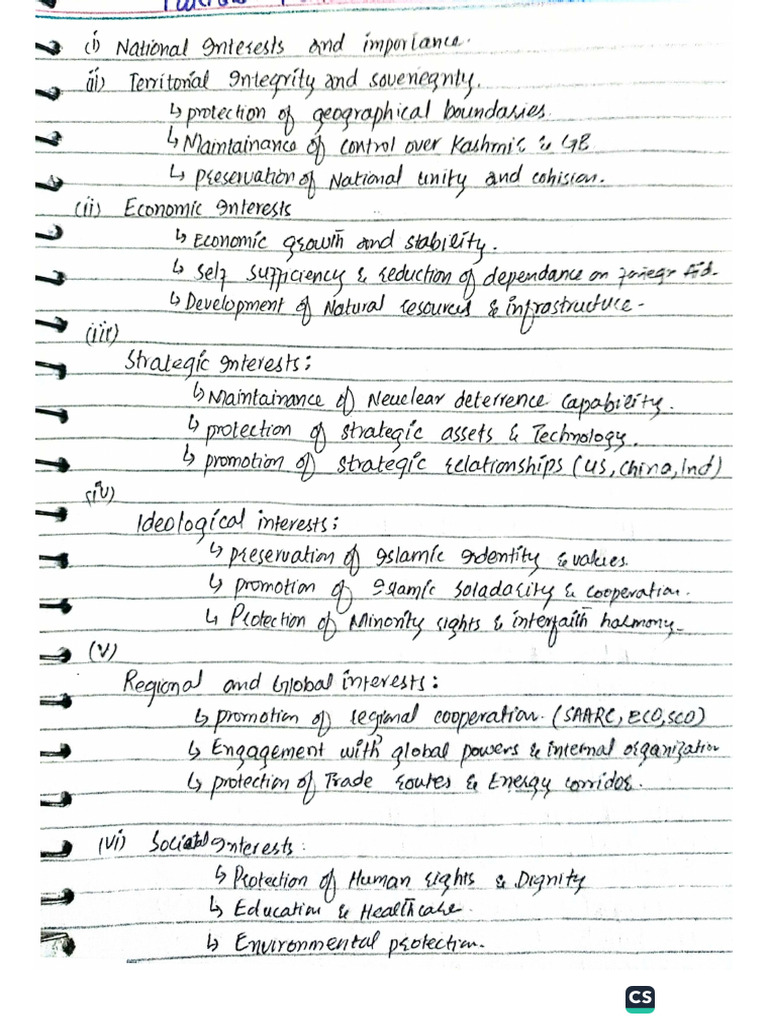 (i) National Interests and importance.
ii) Territorial Integrity and soveriegnty.
↳ protection of geographical boundaries.
↳ Maintainance of control over Kashmir & GB
↳ preservation of National unity and cohision.
(ii) Economic Interests
↳ Economic growth and stability.
↳ self sufficiency & reduction of dependance on foriegn Aid.
↳ Development of Natural resources & infrastructure -
(iii)
Strategic Interests:
↳ Maintainance of Neuclear deterrence capability.
↳ protection of strategic assets & Technology.
↳ promotion of strategic relationships (US, China, Ind)
(iv)
Ideological interests:
↳ preservation of Islamic Identity & values.
↳ promotion of Islamic soladarity & cooperation.
↳ Protection of Minority rights & interfaith harmony.
(v)
Regional and Global interests:
↳ promotion of regional cooperation. (SAARC, ECO, SCO)
↳ Engagement with global powers & internal organization
↳ protection of Trade routes & Energy corridor.
(vi) Societal Interests:
↳ Protection of Human rights & Dignity
↳ Education & Healthcare.
↳ Environmental protection.
CS